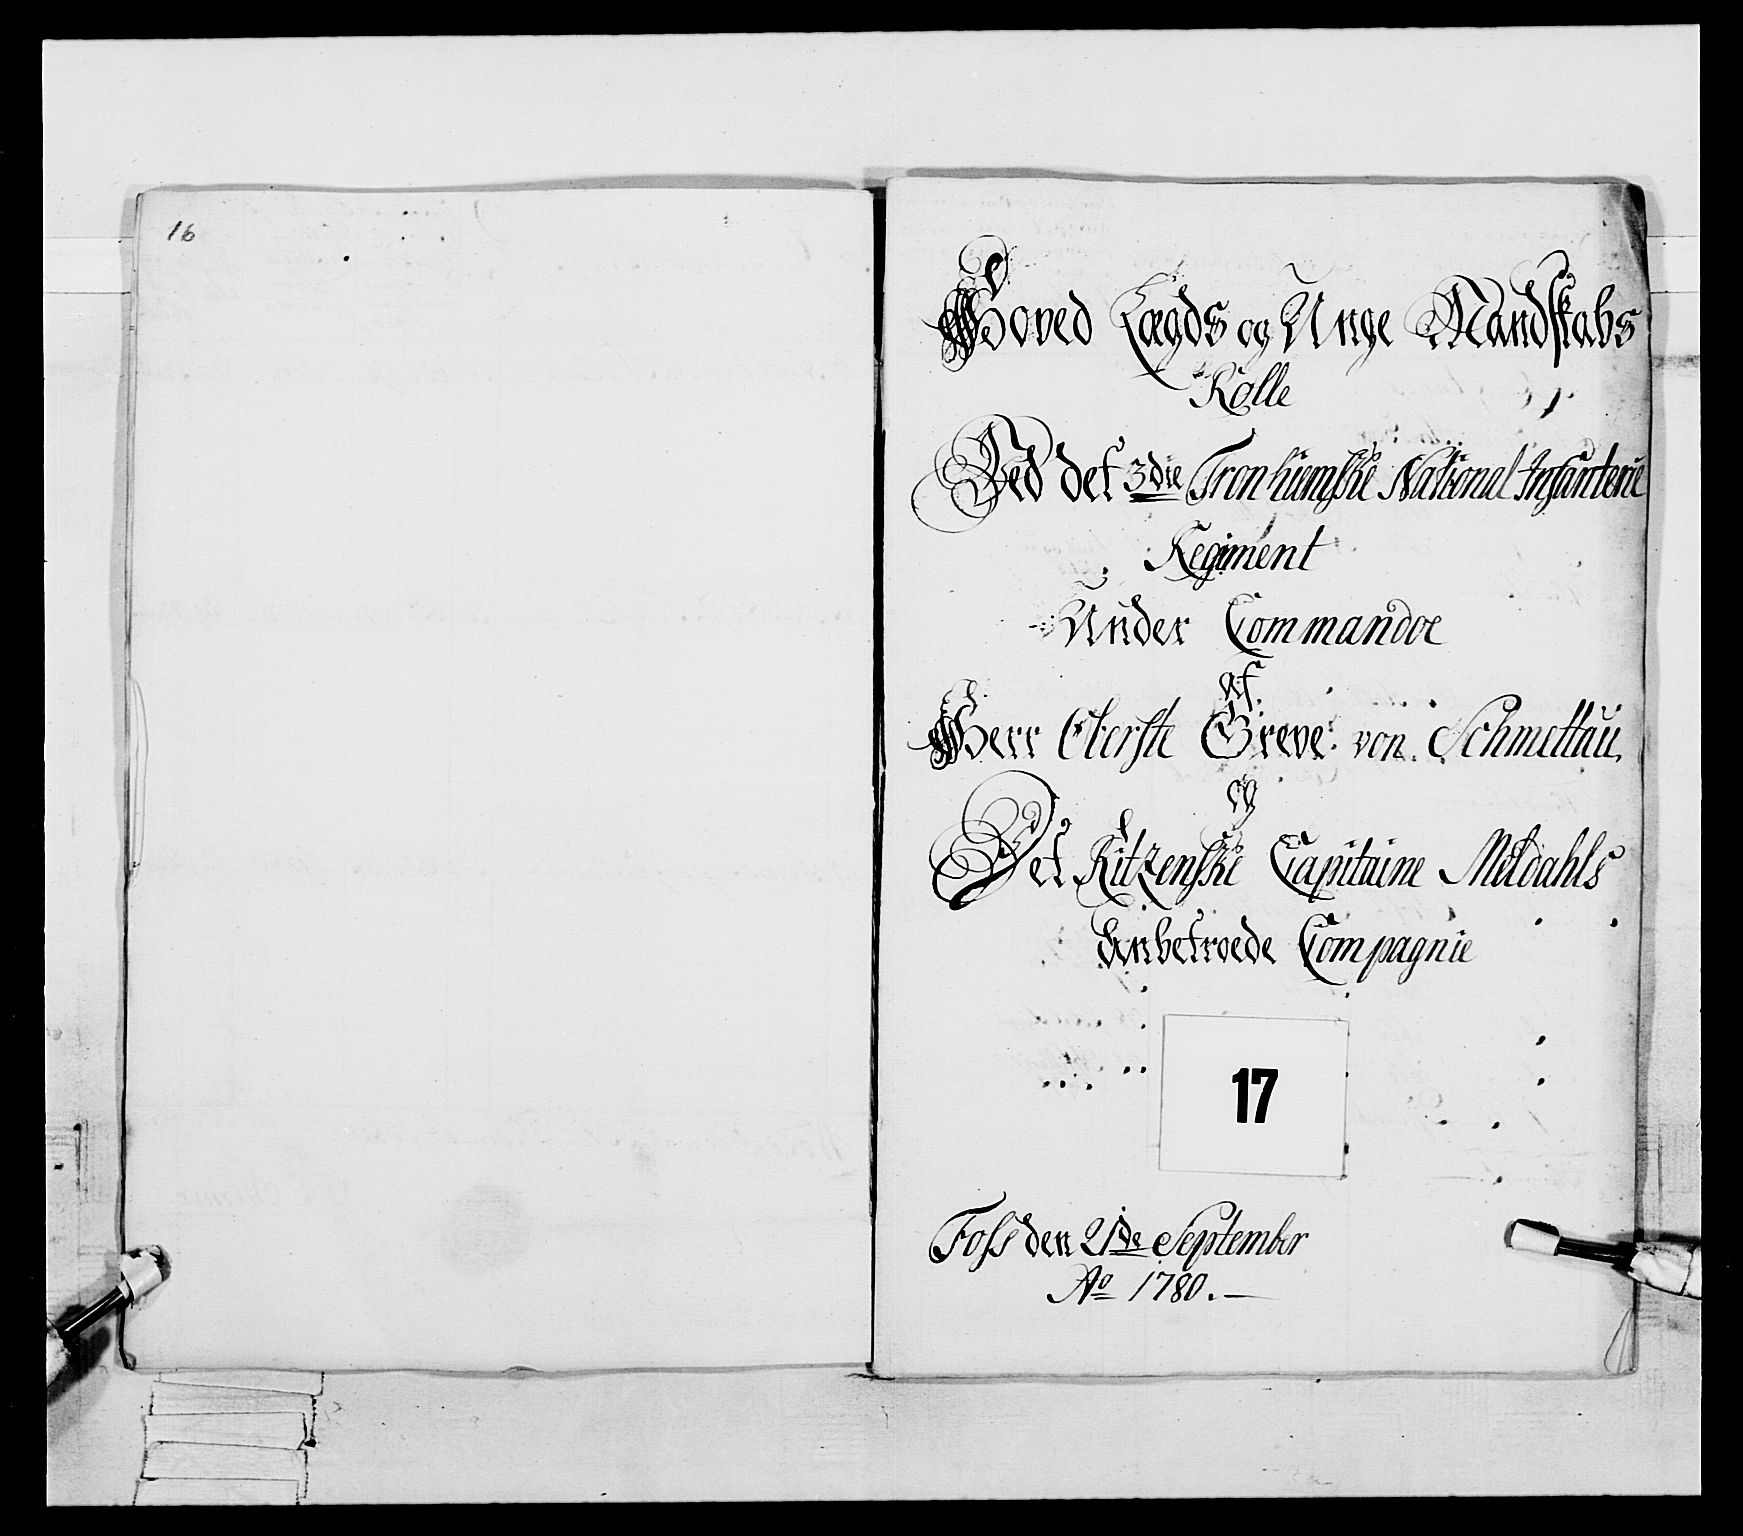 16
Hoved Lægds og Unge Mandskabs
Rolle
Ved det 3die Tronhiemske National Infanterie
Regiment
Under Commandoe
af
Herr Oberste Greve von Schmettau
og
Det Ritzenske Capitaine Meldahls
Anbetroede Compagnie
17
Foss den 21de September
Ao 1780. —